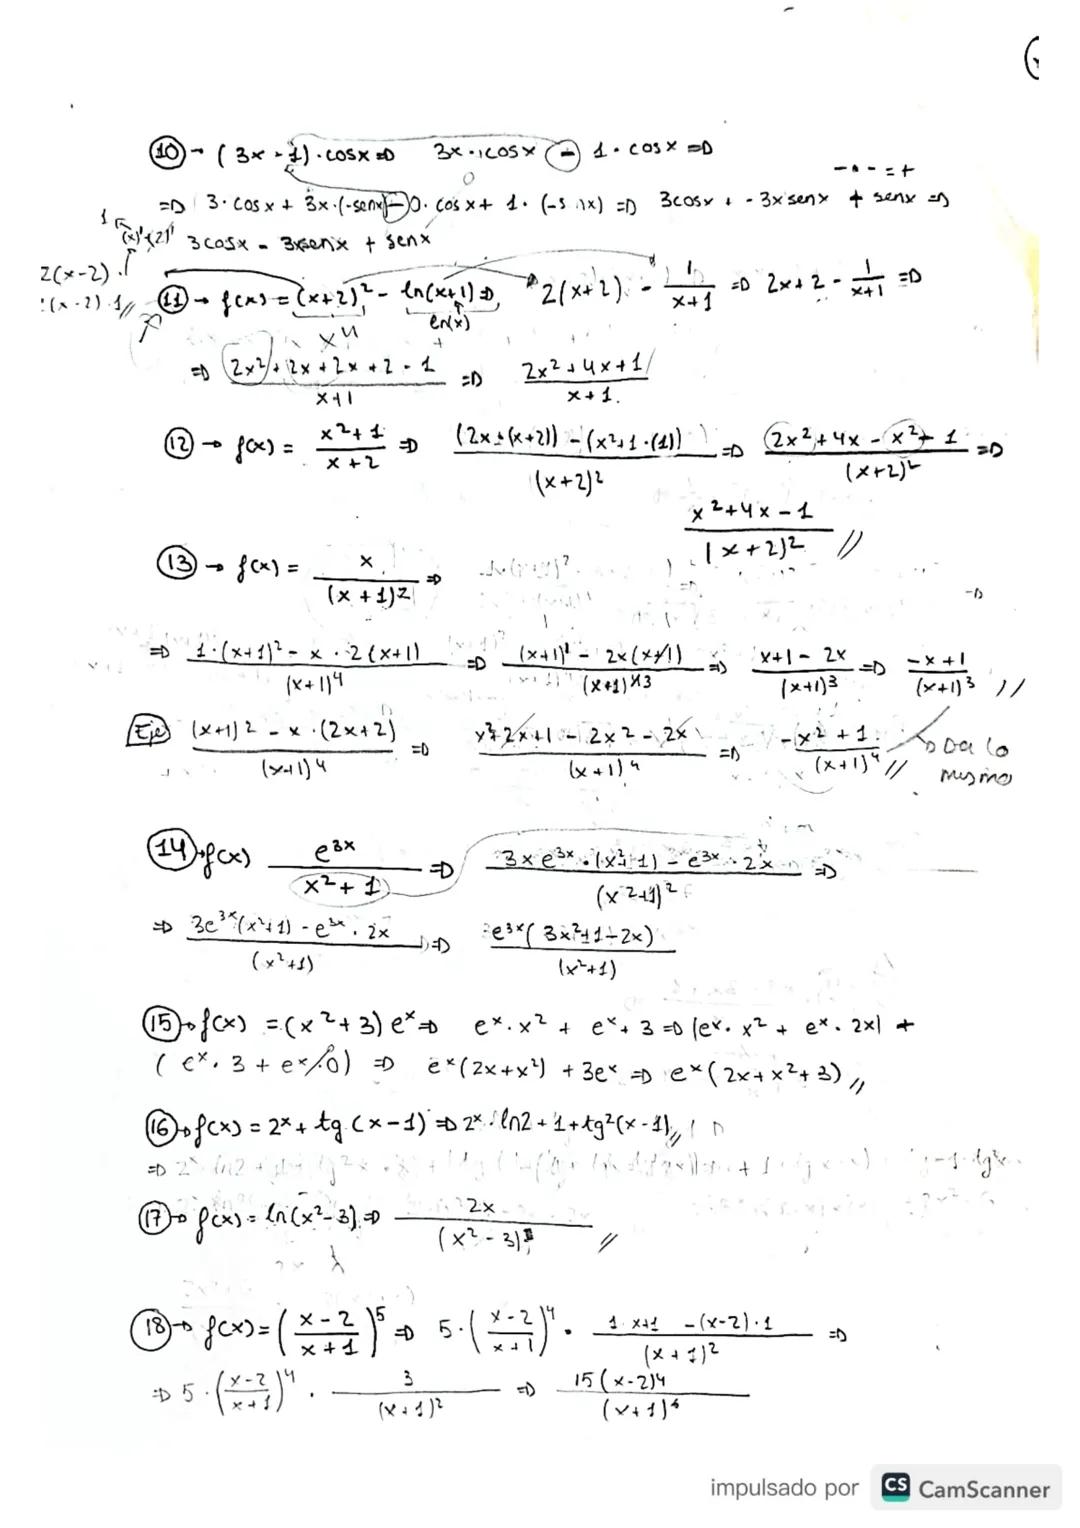 ⑩ → (3x - 1) · cosx ⇒ 3x · 1cosx - 1 · cosx ⇒
- · - = +
⇒ 3 · cosx + 3x · (-senx) - 0 · cosx + 1 · (-s nx) ⇒ 3cosx + - 3xsenx + senx ⇒
1
(x)'+(2)' 3cosx - 3xsenx + senx
2(x-2) · 1
(x-2) · 1//
⑪ → f(x) = (x+2)² - ln(x+1) ⇒ 2(x+2) · - 1/(x+1) ⇒ 2x+2 - 1/(x+1) ⇒
x⁴ ln(x)
⇒ (2x² + 2x + 2x + 2 - 1)/(x+1) ⇒ (2x² + 4x + 1)/(x+1)
⑫ → f(x) = (x²+1)/(x+2) ⇒ ((2x · (x+2)) - (x²+1 · (1)))/(x+2)² ⇒ (2x² + 4x - x² - 1)/(x+2)² ⇒
(x² + 4x - 1)/(x+2)² //
⑬ → f(x) = x/(x+1)² ⇒
⇒ (1 · (x+1)² - x · 2(x+1))/(x+1)⁴ ⇒ ((x+1)¹ - 2x(x+1))/(x+1)⁴³ ⇒ (x+1 - 2x)/(x+1)³ ⇒ (-x+1)/(x+1)³ //
Eje ((x+1)2 - x · (2x+2))/(x+1)⁴ ⇒ (x² + 2x + 1 - 2x² - 2x)/(x+1)⁴ ⇒ (-x² + 1)/(x+1)⁴ // → Da lo
mismo
⑭ → f(x) e³ˣ/(x²+1) ⇒ (3xe³ˣ · (x²+1) - e³ˣ · 2x)/(x²+1)² ⇒
⇒ (3e³ˣ(x²+1) - e³ˣ · 2x)/(x²+1) ⇒ e³ˣ(3x²+1-2x)/(x²+1)
⑮ → f(x) = (x²+3)eˣ ⇒ eˣ · x² + eˣ + 3 ⇒ (eˣ · x² + eˣ · 2x) +
(eˣ · 3 + eˣ · 0) ⇒ eˣ(2x+x²) + 3eˣ ⇒ eˣ(2x+x²+3) //
⑯ → f(x) = 2ˣ + tg (x-1) ⇒ 2ˣ · ln2 + 1 + tg²(x-1) //
⑰ → f(x) = ln(x²-3) ⇒ 2x/(x²-3) //
⑱ → f(x) = ((x-2)/(x+1))⁵ ⇒ 5 · ((x-2)/(x+1))⁴ · (1 · x+1 - (x-2) · 1)/(x+1)² ⇒
⇒ 5 · ((x-2)/(x+1))⁴ · 3/(x+1)² ⇒ 15(x-2)4/(x+1)⁶
impulsado por CS CamScanner